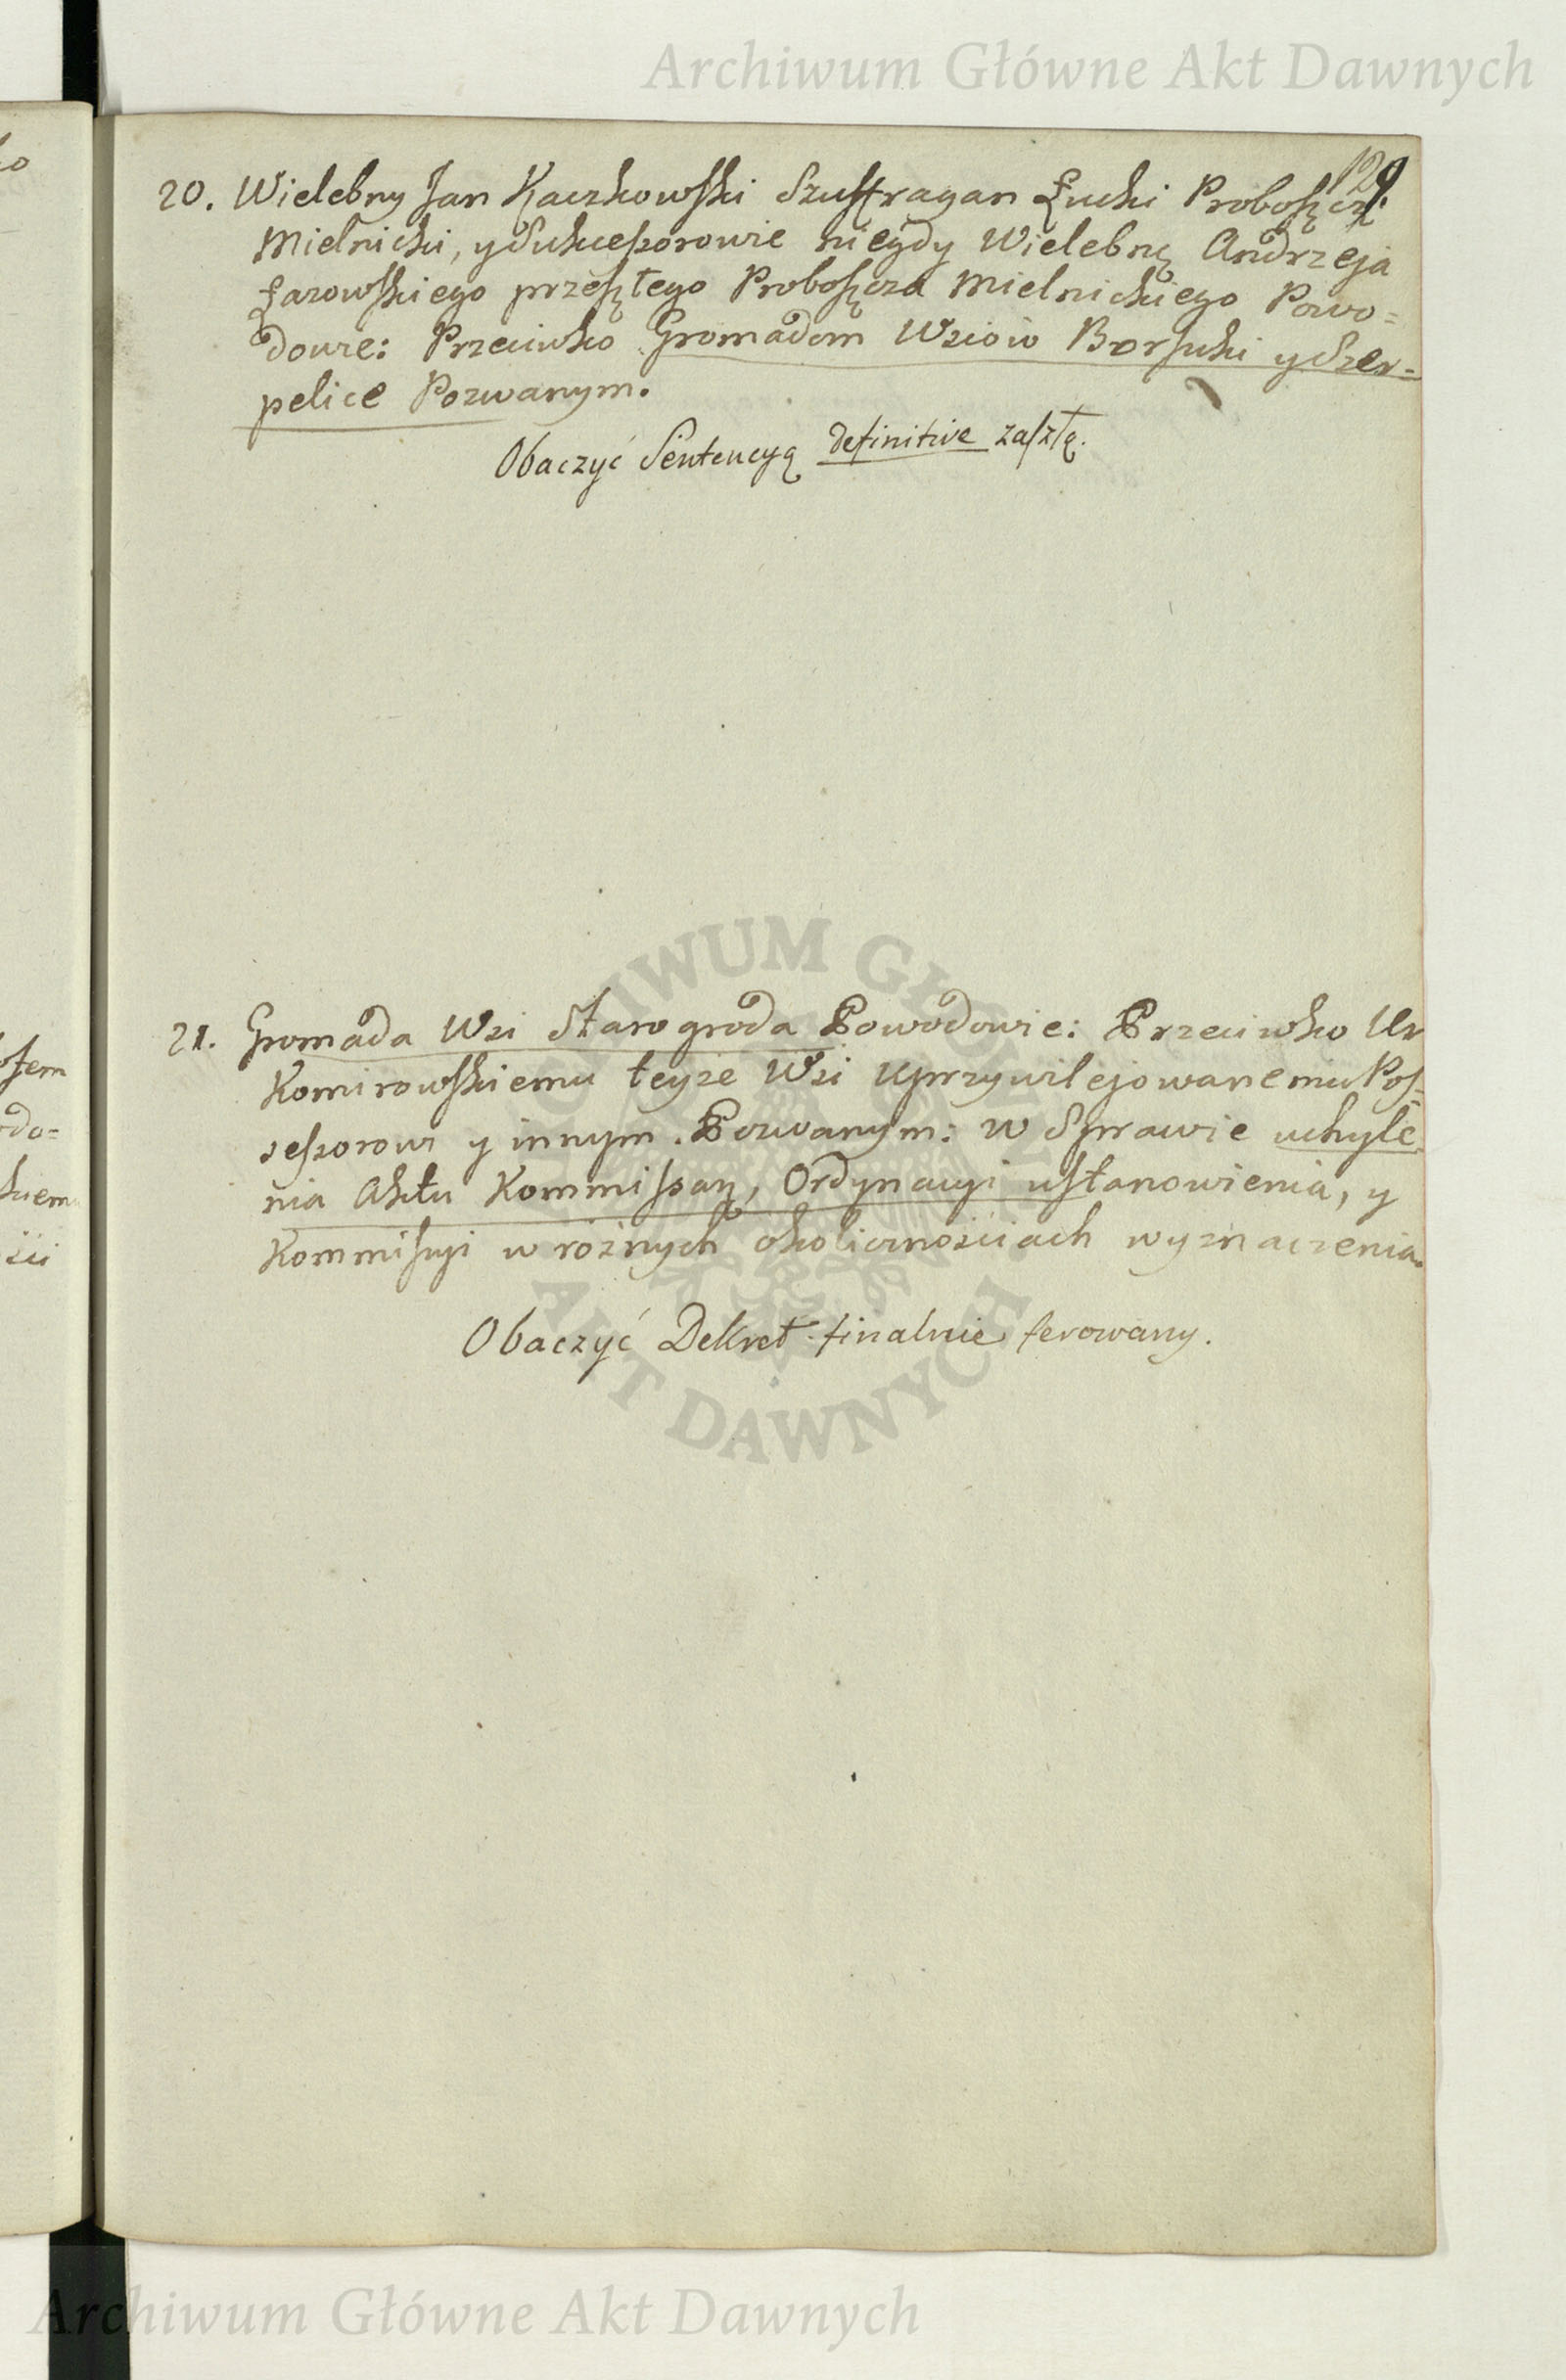 Archiwum Główne Akt Dawnych
129
20. Wielebny Jan Kaczkowski Szuffragan Łucki Proboszcz
Mielnicki, y Sukcessorowie niegdy Wielebnę Andrzeja
Łazowskiego przeszłego Proboszcza Mielnickiego Powo=
dowie: Przeciwko Gromadom Wsiow Borsuki y Szer=
pelice Pozwanym.
Obaczyć Sentencyą definitive zaszłą.
21. Gromada Wsi Starogroda Powodowie: Przeciwko Ur
Komirowskiemu teyże Wsi Uprzywilejowanemu Pos=
sessorowi y innym Pozwanym: w Sprawie uchyle
nia Aktu Kommissarę, Ordynacyi ustanowienia, y
Kommissyi w rożnych okolicznościach wyznaczenia.
Obaczyć Dekret finalnie ferowany.
ARCHIWUM GŁÓWNE AKT DAWNYCH
Archiwum Główne Akt Dawnych